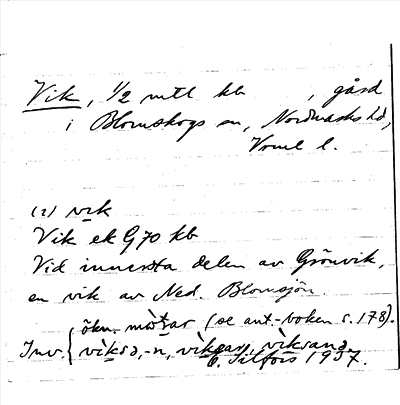 Vik, 1/2 mtl kb , gård
i Blomskogs sn, Nordmarks hd,
Vrml l.
(i) vik
Vik ek G 70 kb
Vid innersta delen av Grönvik,
en vik av Ned. Blomsjön.
Inv. { ökn. mòsar (se ant.-boken s. 178).
vìksə, -n, vìksar, vìksanə
E. Tilfors 1937.